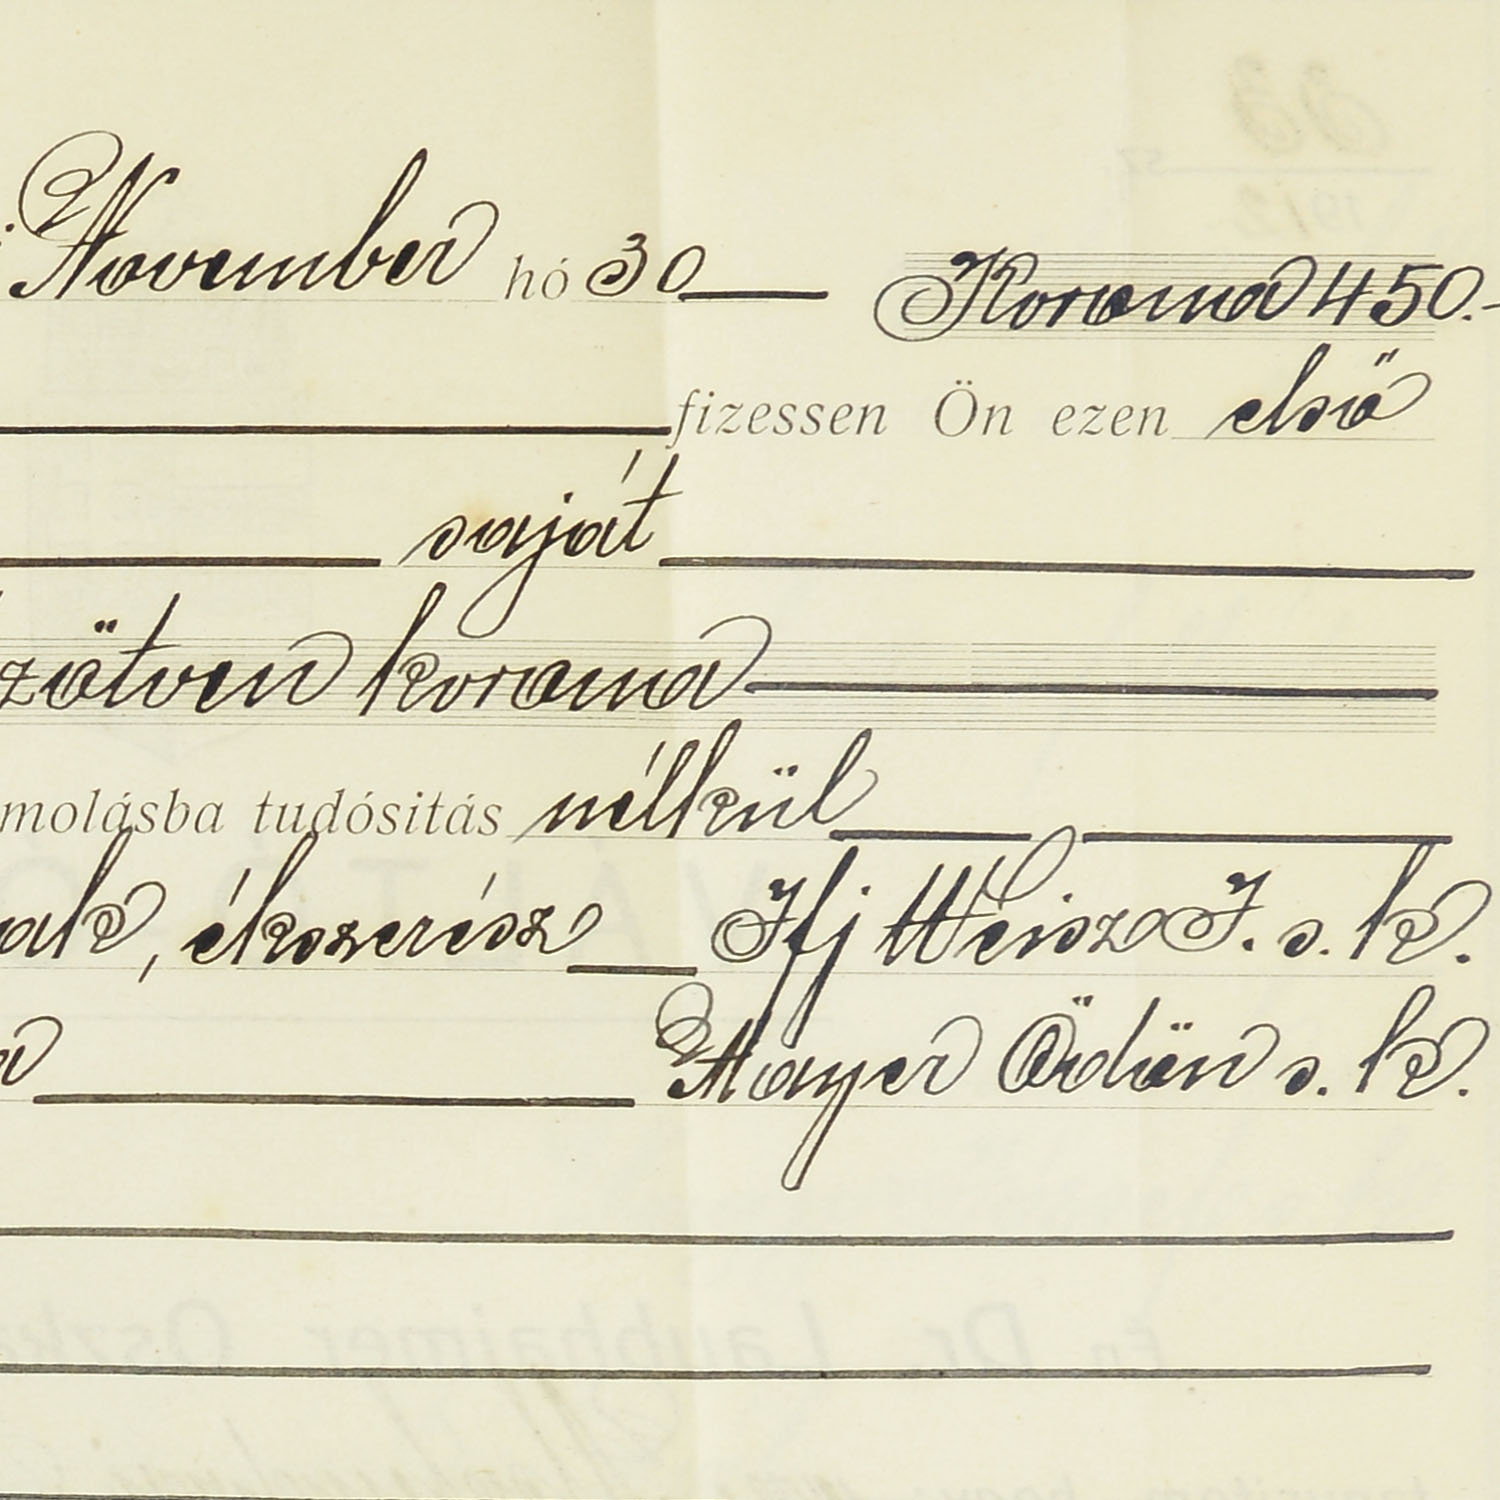 November hó 30 Korona 450.-
fizessen Ön ezen első
saját
zötven korona
molásba tudósitás nélkül
ak, ékszerész Ifj Weisz J. s. k.
Mayer Ödön s. k.